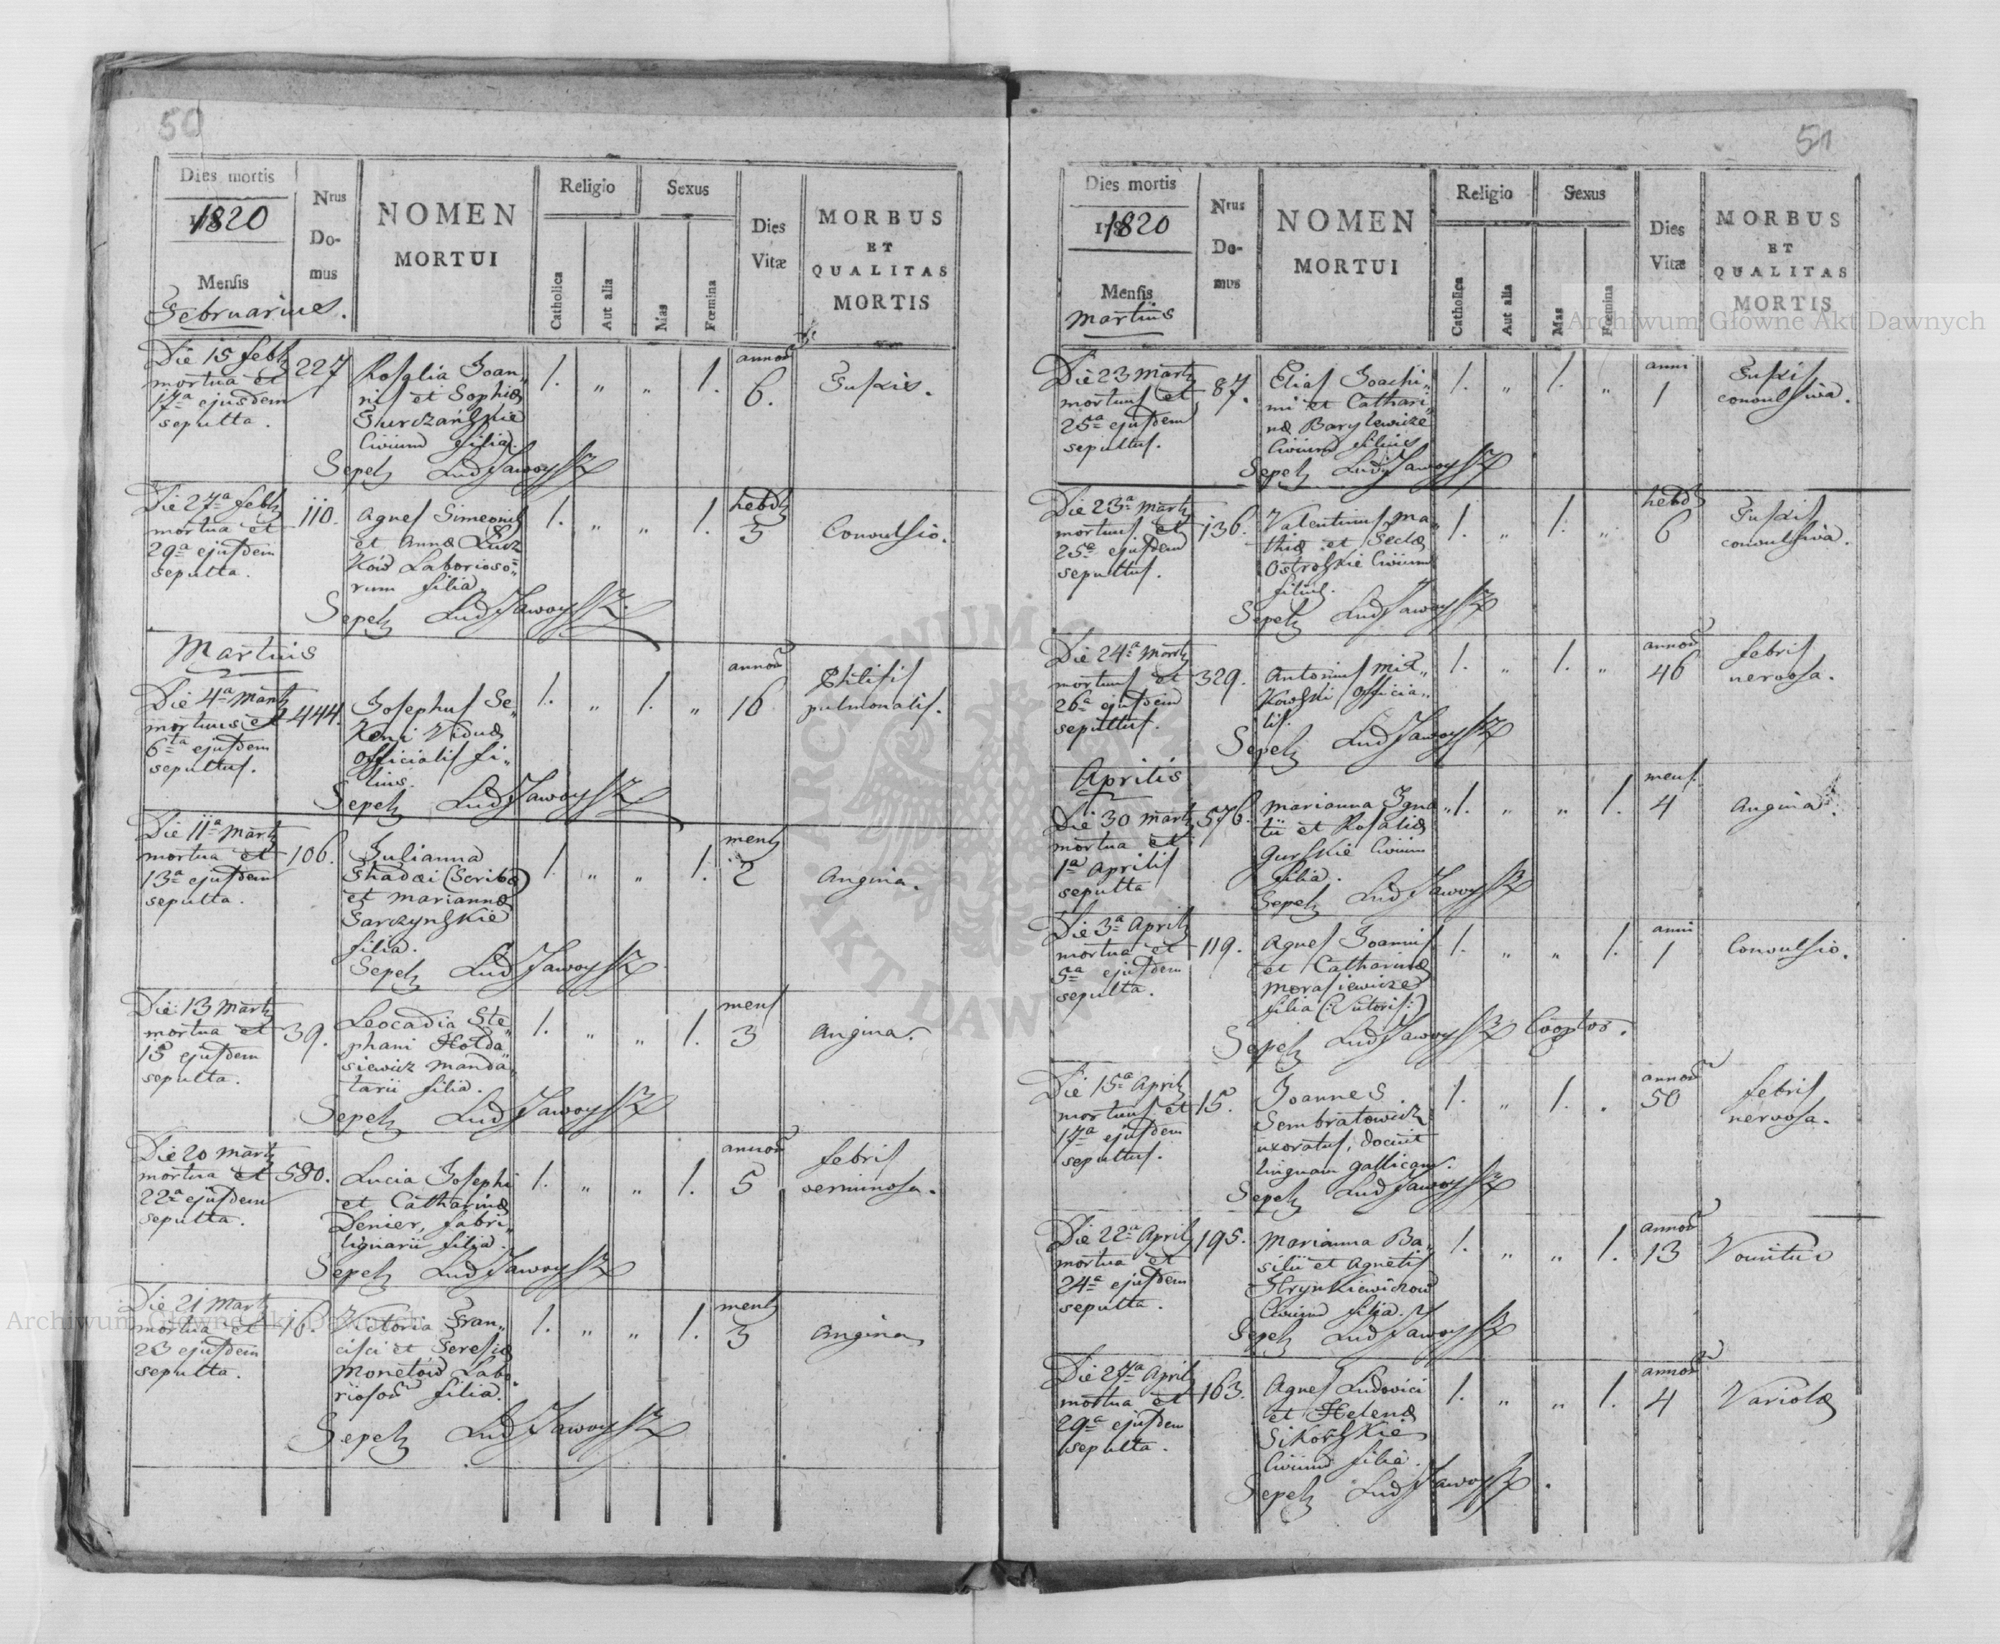 50
Dies mortis
1820
Mensis
Februarius.
Nrus
Do-
mus
NOMEN
MORTUI
Religio
Catholica
Aut alia
Sexus
Mas
Fœmina
Dies
Vitæ
MORBUS
ET
QUALITAS
MORTIS
Die 15 febr
mortua et
17a ejusdem
sepulta.
227
Rosalia Joan„
nis et Sophiæ
Civium filia.
1. „ „ 1.
annor
6.
Tussis.
Sepel Lud Jaworsk
Die 27a febr
mortua et
29a ejusdem
sepulta.
110.
Agnes Simeonis
et Annæ
ków Laborioso„
rum filia
1. „ „ 1.
hebd
3
Convulsio.
Sepel Lud Jaworsk
Martius
Die 4a Mart
mortuus et
6ta ejusdem
sepultus.
444.
Josephus Se„
keni Viduæ
Officialis fi„
lius.
1. „ 1. „
annor
16
Phtisis
pulmonalis.
Sepel Lud Jaworsk
Die 11a Mart
mortua et
13a ejusdem
sepulta.
106.
Julianna
Thadæi (Scribæ)
et Mariannæ
Sarczynskie
filia.
1. „ „ 1.
mens
2
Angina.
Sepel Lud Jaworsk
Die 13 Mart
mortua et
15 ejusdem
sepulta.
39.
Leocadia Ste„
phani Hołda„
siewicz Manda„
tarii filia.
1. „ „ 1.
mens
3
Angina.
Sepel Lud Jaworsk
Die 20 Mart
mortua et
22a ejusdem
sepulta.
580.
Lucia Josephi
et Catharinæ
Denier, fabri
lignarii filia.
1. „ „ 1.
annor
5
febris
verminosa.
Sepel Lud Jaworsk
Die 21 Mart
mortua et
23 ejusdem
sepulta.
16.
Victoria Fran„
cisci et Teresiæ
Monetów Labo„
riosor filia.
1. „ „ 1.
mens
3
Angina
Sepel Lud Jaworsk
51
Dies mortis
1820
Mensis
Martius
Nrus
Do-
mus
NOMEN
MORTUI
Religio
Catholica
Aut alia
Sexus
Mas
Fœmina
Dies
Vitæ
MORBUS
ET
QUALITAS
MORTIS
Die 23 Mart
mortuus et
25a ejusdem
sepultus.
87.
Elias Joachi„
mi et Cathari„
næ Barylewicze
Civium filius
1. „ 1. „
anni
1
Tussis
convulsiva.
Sepel Lud Jaworsk
Die 23a Mart
mortuus et
25a ejusdem
sepultus.
136.
Valentinus Ma„
thiæ et Teclæ
Ostrolskie Civium
filius.
1. „ 1. „
hebd
6
Tussis
convulsiva.
Sepel Lud Jaworsk
Die 24a Mart
mortuus et
26a ejusdem
sepultus.
329.
Antonius Mit„
kowski Officia„
lis.
1. „ 1. „
annor
46
febris
nervosa.
Sepel Lud Jaworsk
Aprilis
Die 30 Mart
mortua et
1a Aprilis
sepulta
576.
Marianna Igna
tii et Rosaliæ
Gurskie Civium
filia.
„ 1. „ „ 1.
mens
4
Angina.
Sepel Lud Jaworsk
Die 3a April
mortua et
5a ejusdem
sepulta.
119.
Agnes Joannis
et Catharinæ
Morasiewicze
filia (: Sutoris :)
1. „ „ 1.
anni
1
Convulsio.
Sepel Lud Jaworsk Cooptor.
Die 15a April
mortuus et
17a ejusdem
sepultus.
15.
Joannes
Sembratowicz
uxoratus, docuit
linguam gallicam.
1. „ 1. .
annor
50
febris
nervosa.
Sepel Lud Jaworsk
Die 22a April
mortua et
24a ejusdem
sepulta.
195.
Marianna Ba„
silii et Agnetis
Hrynkiewiczow
Civium filia.
1. „ „ 1.
annor
13
Vomitus
Sepel Lud Jaworsk
Die 27a April
mortua et
29a ejusdem
sepulta.
163.
Agnes Ludovici
et Helenæ
Sikorskie
Civium filia.
1. „ „ 1.
annor
4
Variolæ
Sepel Lud Jaworsk.
Archiwum Główne Akt Dawnych
Archiwum Główne Akt Dawnych